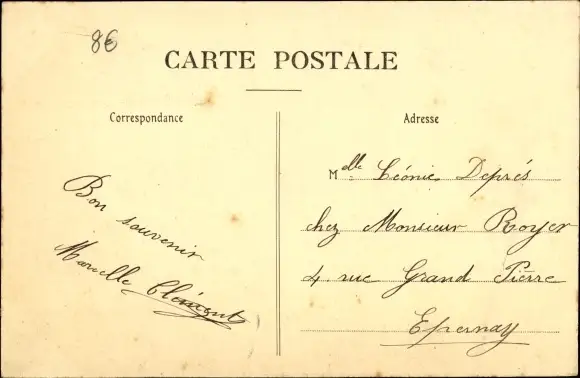 86
CARTE POSTALE
Correspondance
Bon souvenir
Marcelle Clément
Adresse
Mlle Léonie Deprés
chez Monsieur Royer
4 rue Grand Pierre
Epernay